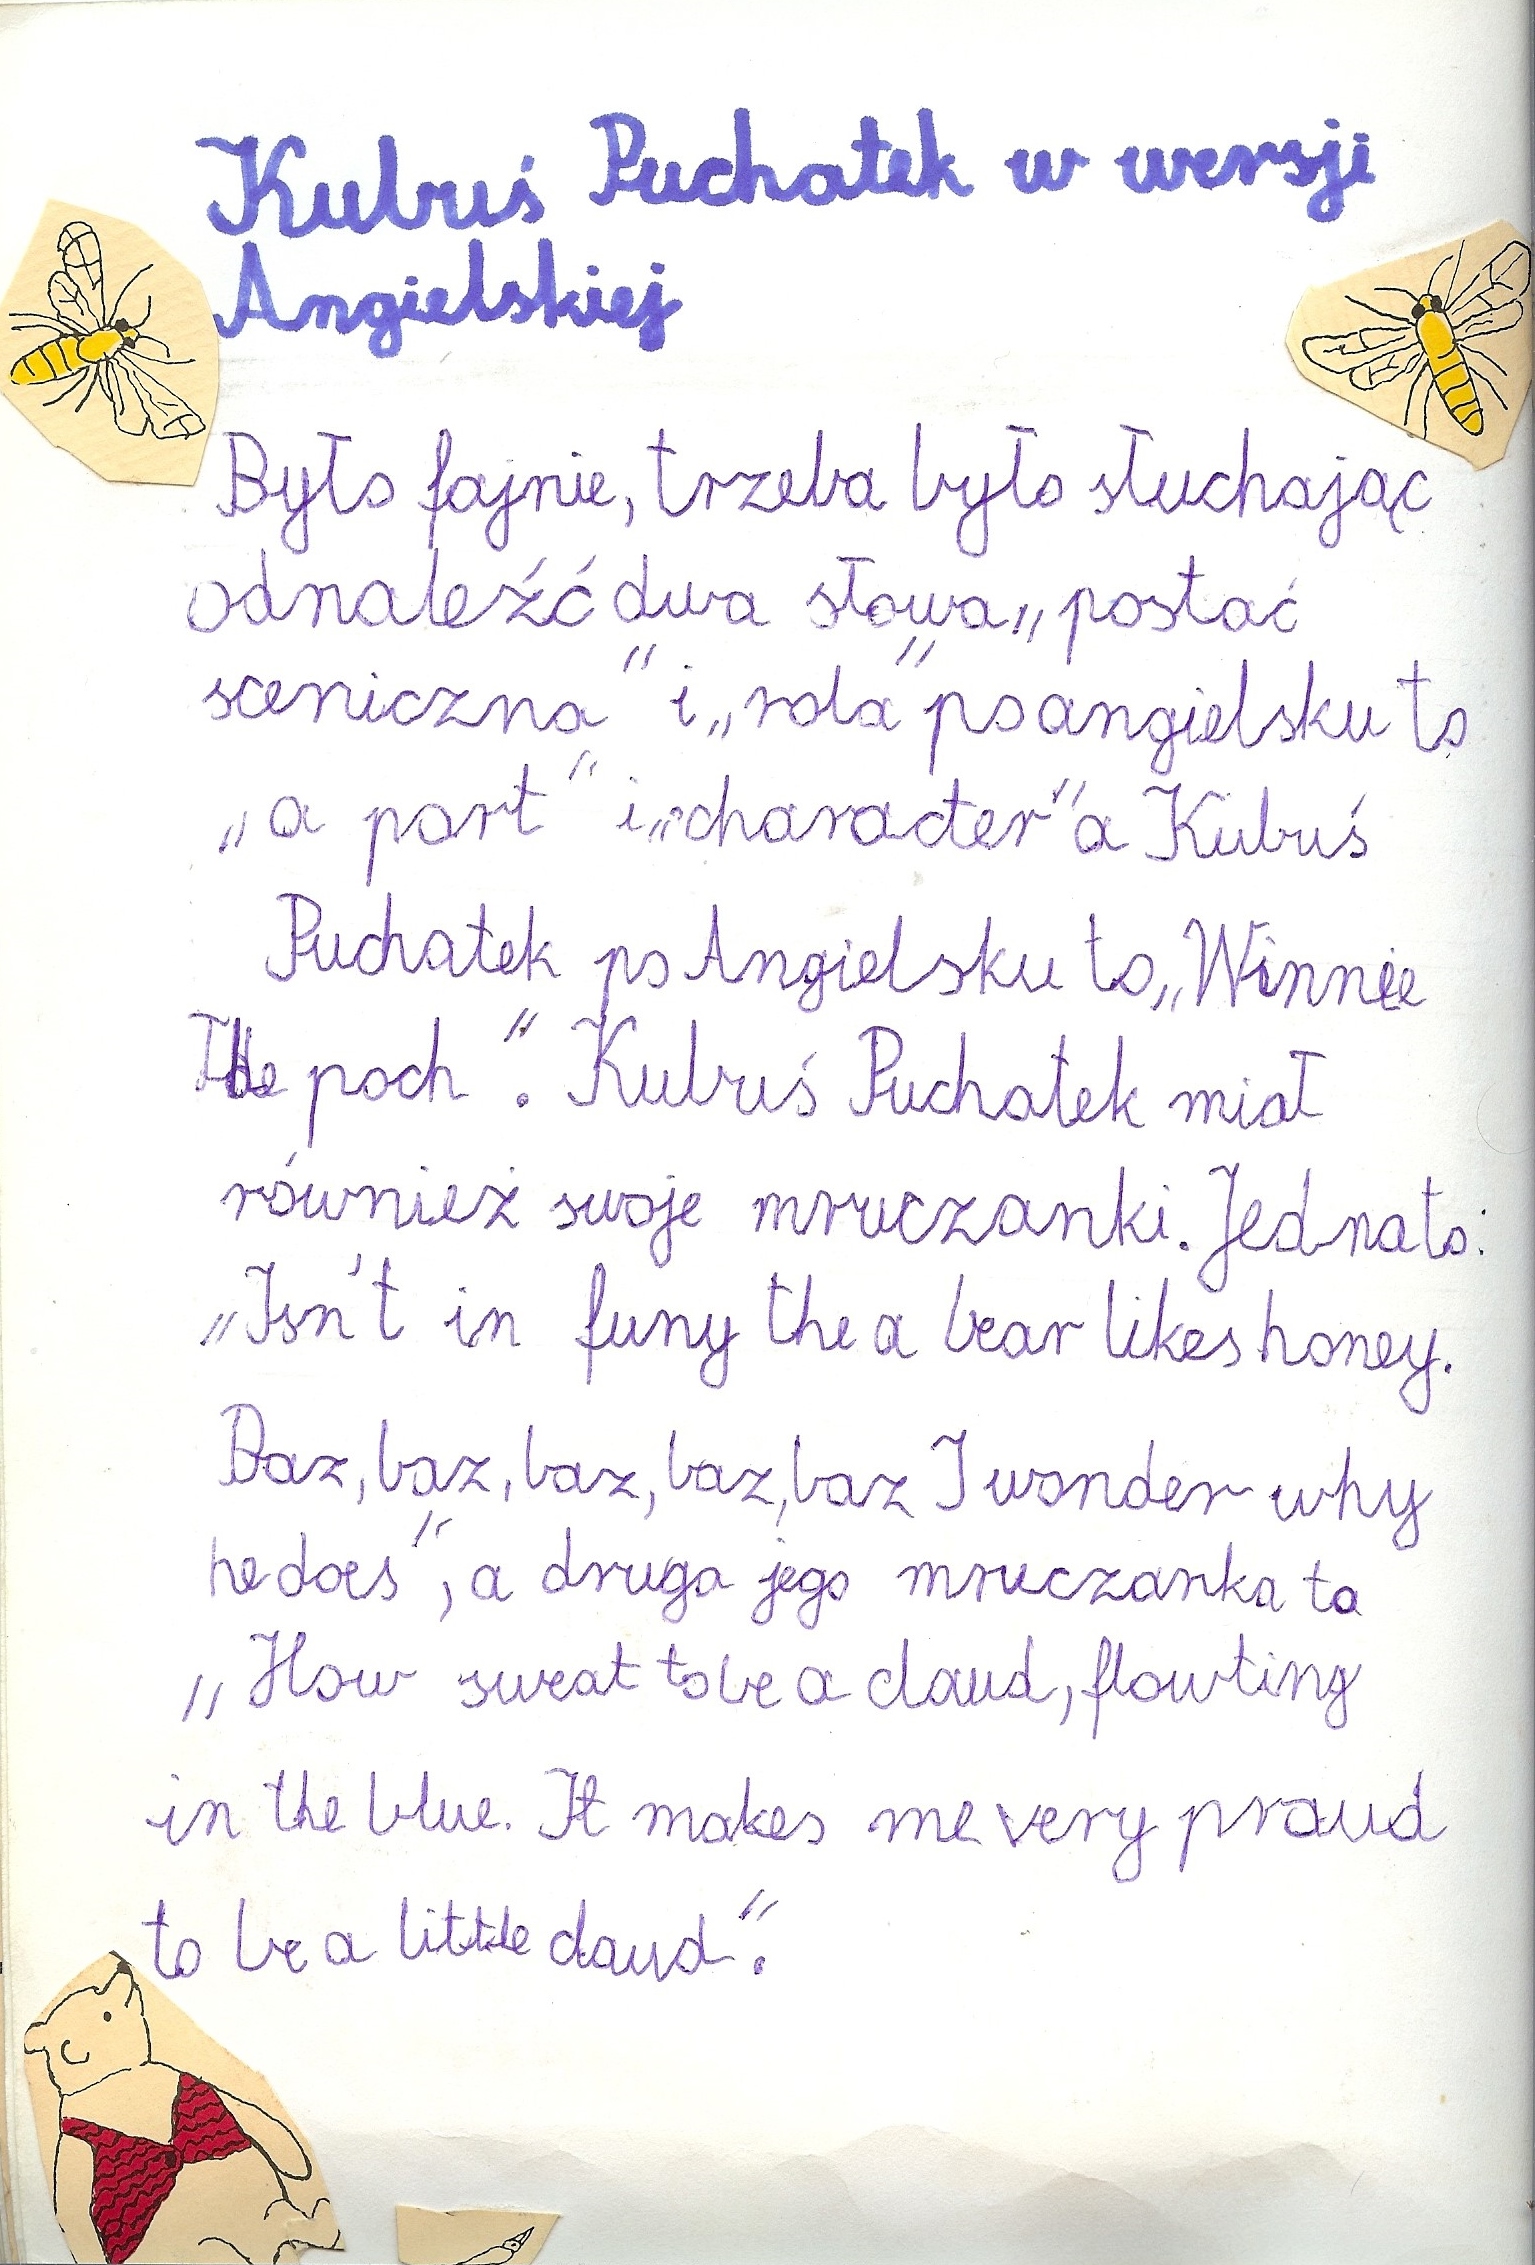 Kubuś Puchatek w wersji
Angielskiej
Było fajnie, trzeba było słuchając
odnaleźć dwa słowa „postać
sceniczna” i „rola” po angielsku to
„a part” i „character” a Kubuś
Puchatek po Angielsku to „Winnie
The poch”. Kubuś Puchatek miał
również swoje mruczanki. Jedna to:
„Isn't in funy the a bear likes honey.
Baz, baz, baz, baz, baz I wonder why
he does”, a druga jego mruczanka to
„How sweat to be a claud, flowting
in the blue. It makes me very praud
to be a little claud”.